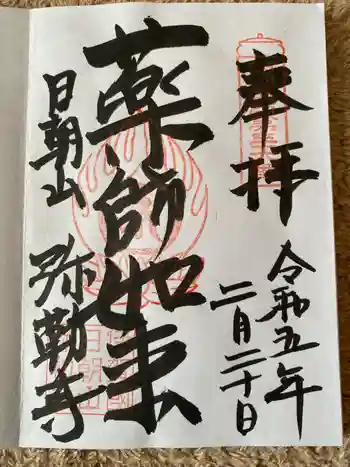 奉拝
令和五年
二月二十日
薬師如来
日朝山
弥勒寺